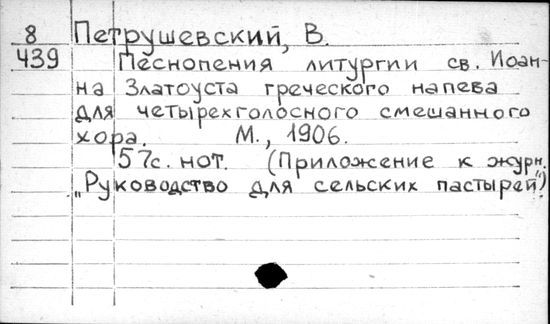 8 Петрушевский, В.
439 Песнопения литургии св. Иоан-
на Златоуста греческого напева
для четырехголосного смешанного
хора. М., 1906.
57с. нот. (Приложение к журн.
„Руководство для сельских пастырей")